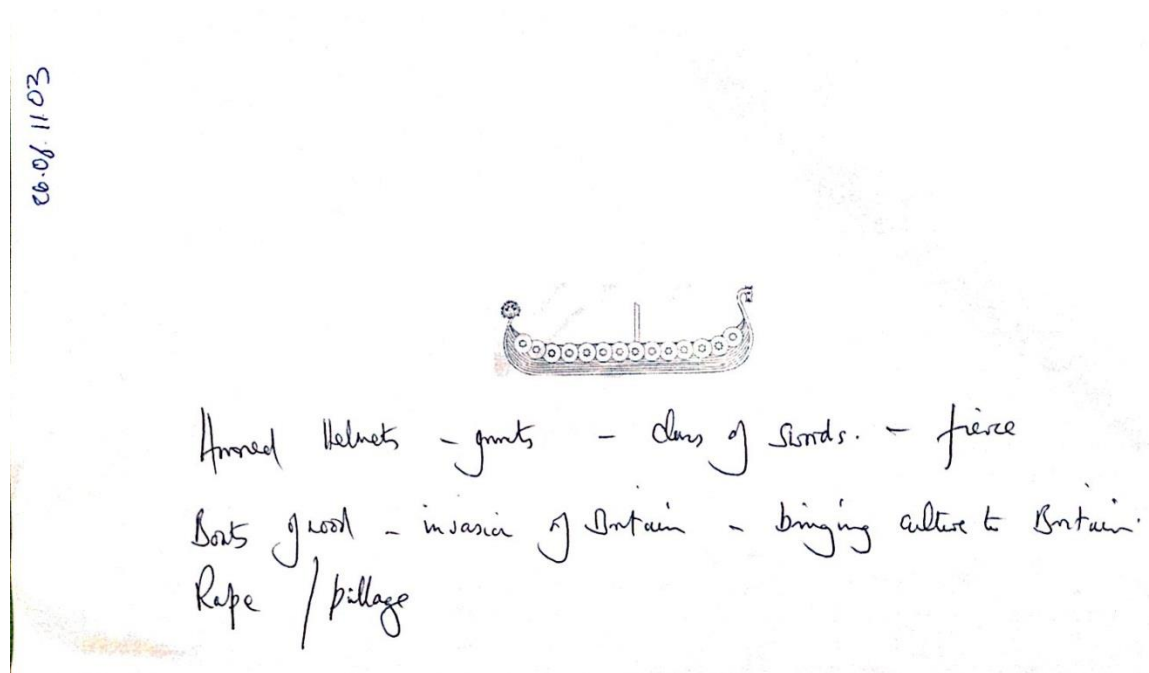 26.08.11 03
Horned Helmets - grunts - clans of swords. - fierce
Boats of wood - invasion of Britain - bringing culture to Britain.
Rape / pillage